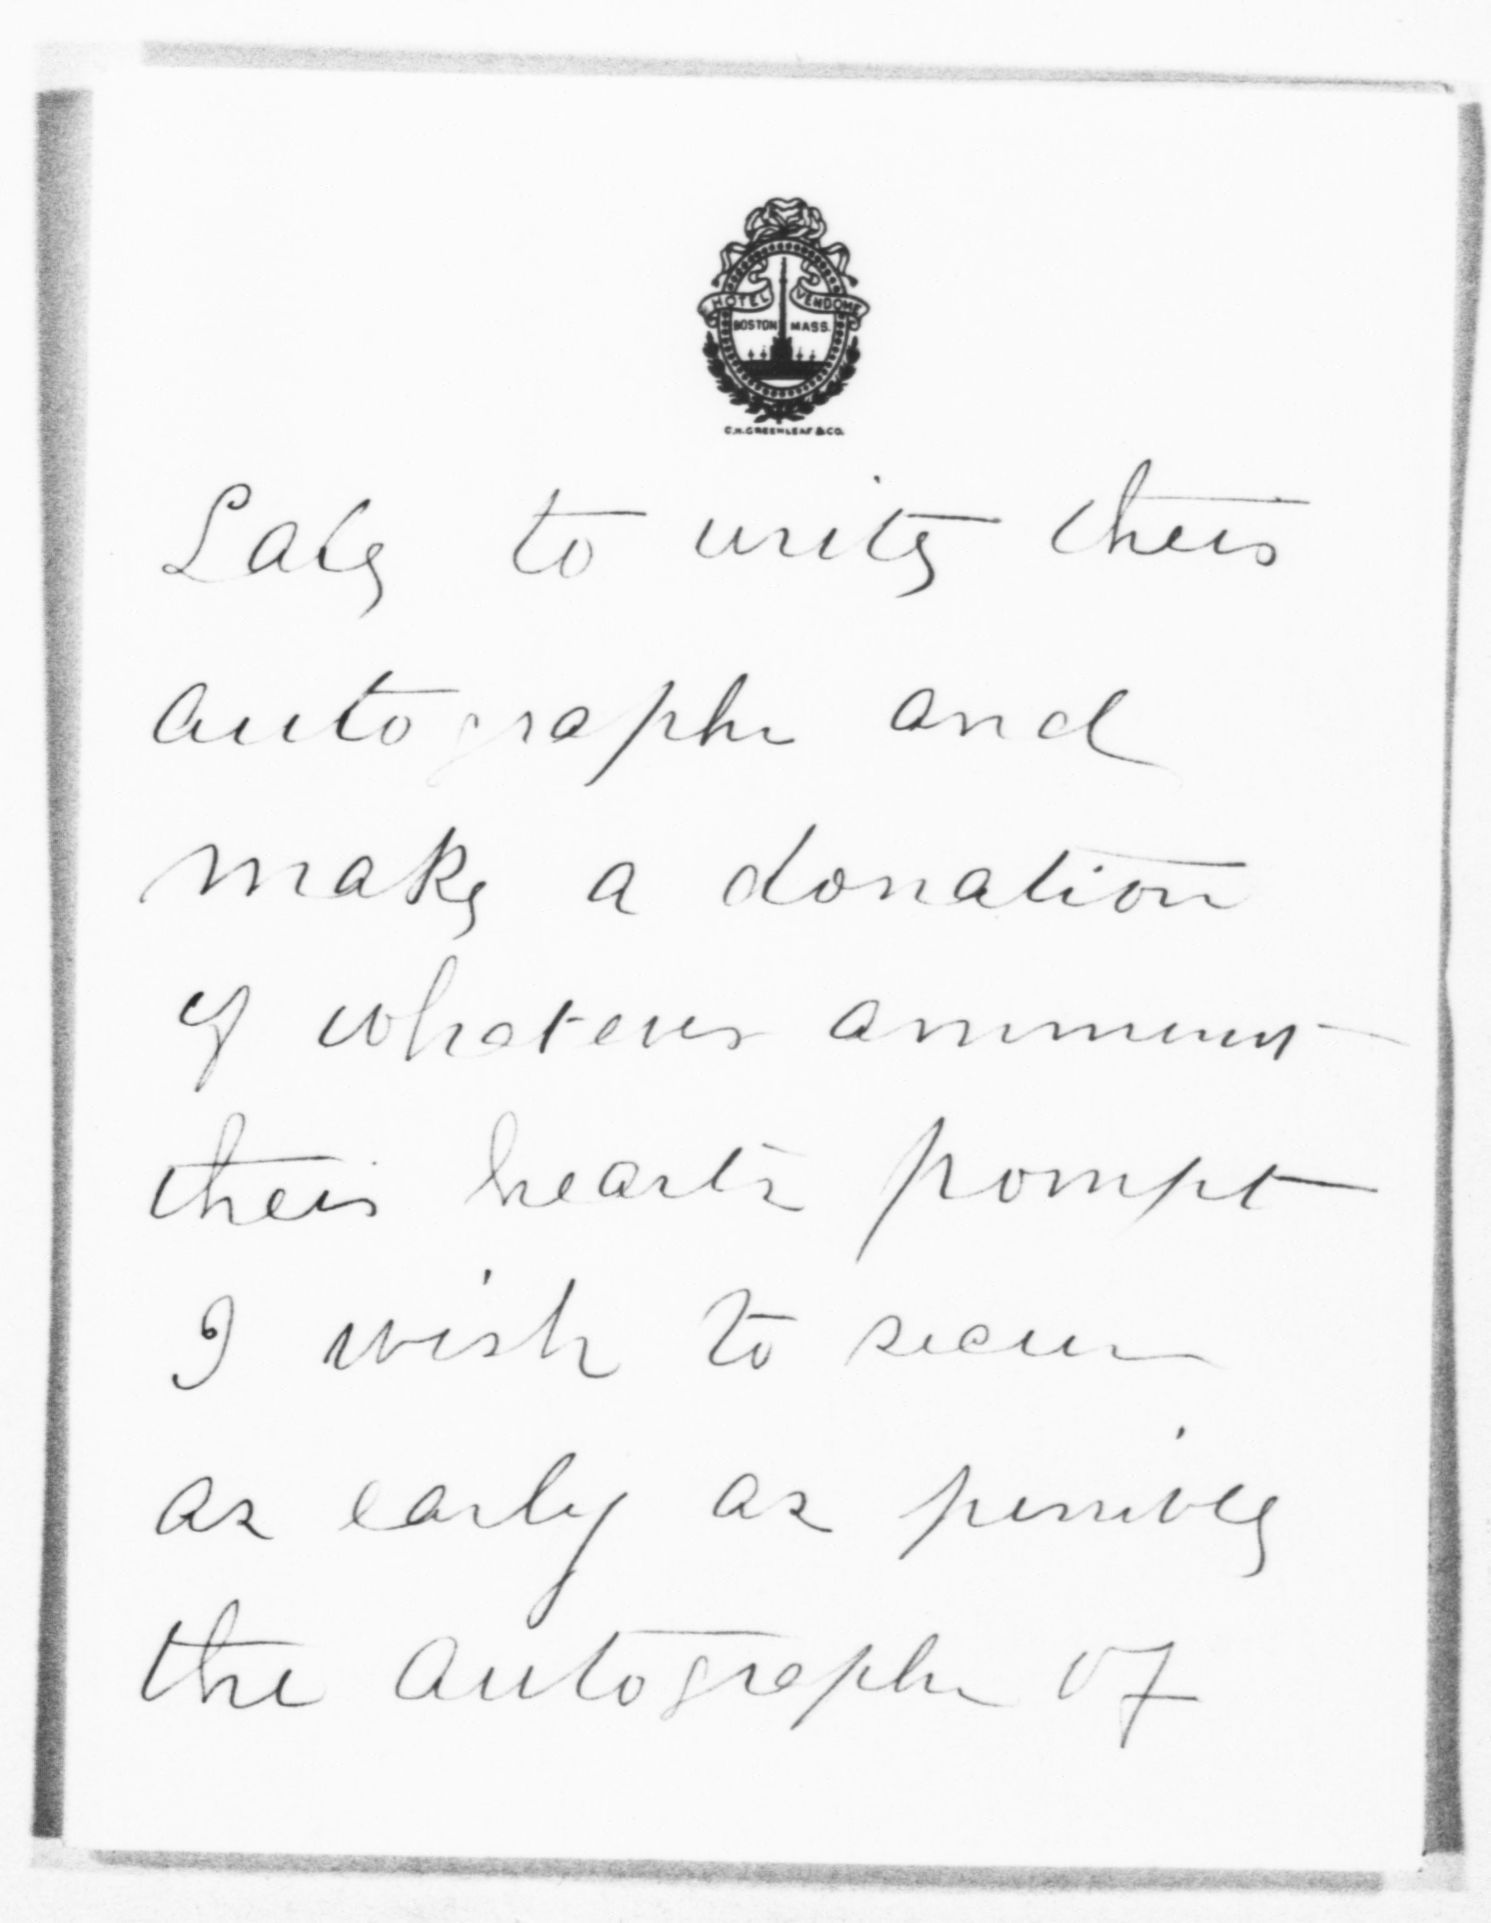 HOTEL VENDOME
BOSTON MASS.
C.H. GREENLEAF & CO.
to write their
autograph and
make a donation
of whatever ammount
their hearts prompt
I wish to secure
as early as possible
the autograph of